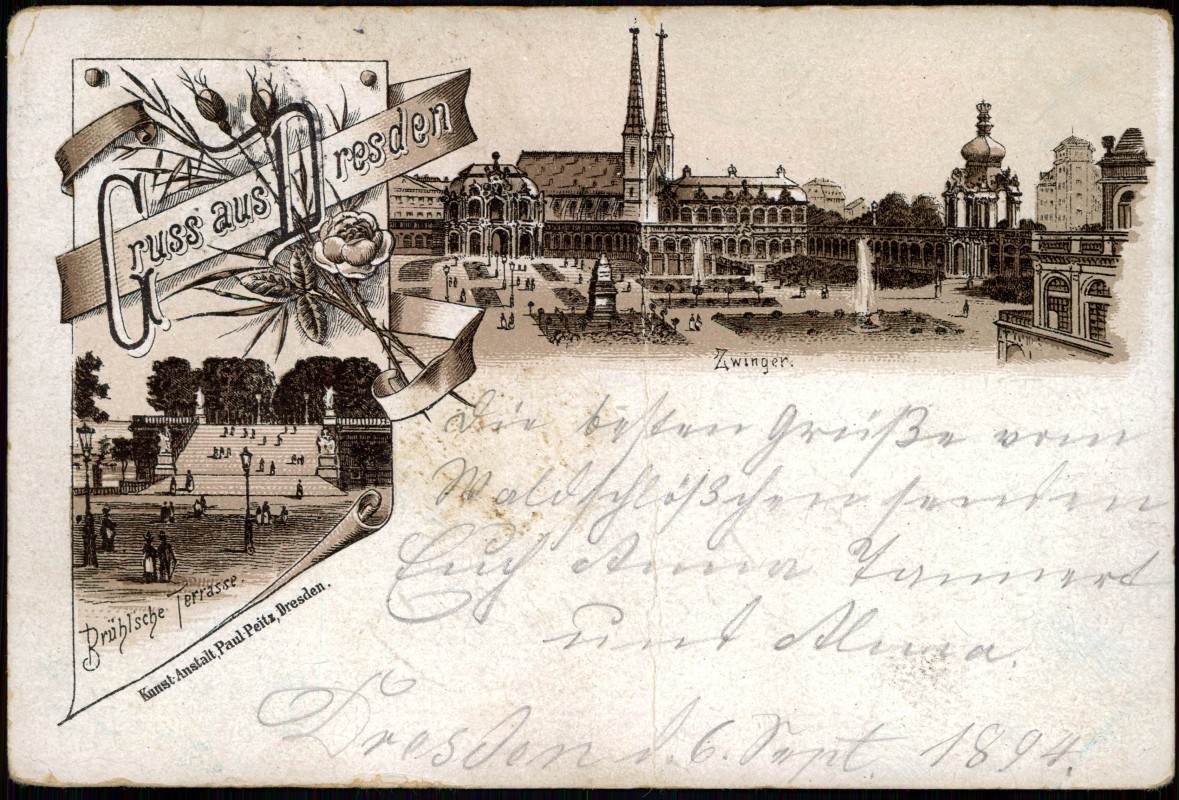 Gruss aus Dresden
Zwinger.
Die besten Grüße vom
Waldschlößchen senden
Euch Anna Tannert
und Alma.
Dresden d. 6. Sept. 1894.
Brühlsche Terrasse.
Kunst-Anstalt, Paul Peitz, Dresden.